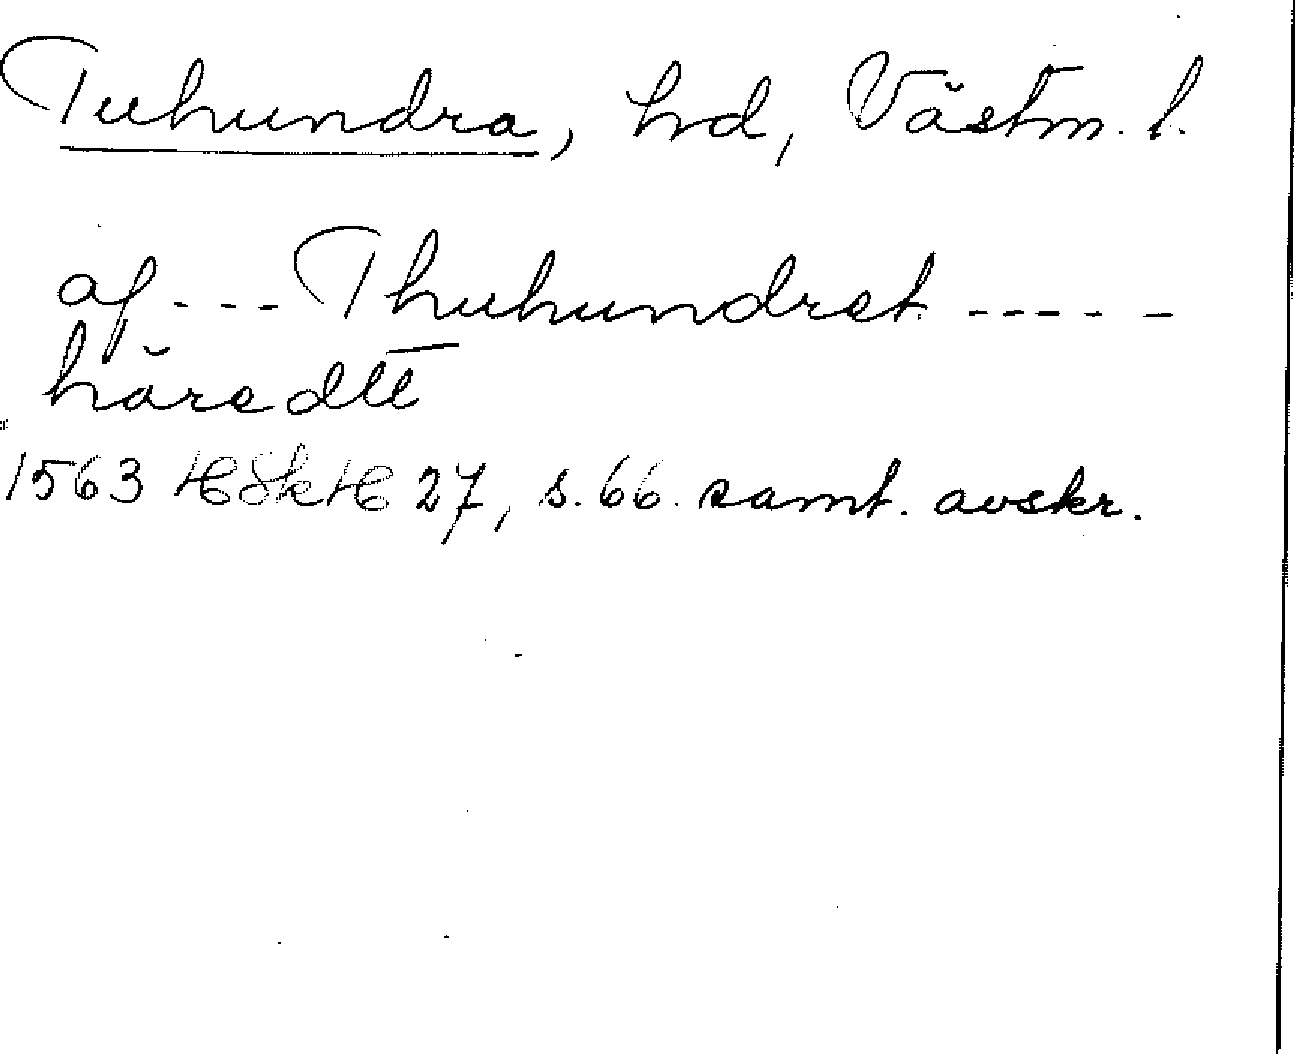 Tuhundra, hrd, Västm. l.
af --- Thuhundret -----
häredtt
1563 HSkH 27, s. 66. samt. avskr.